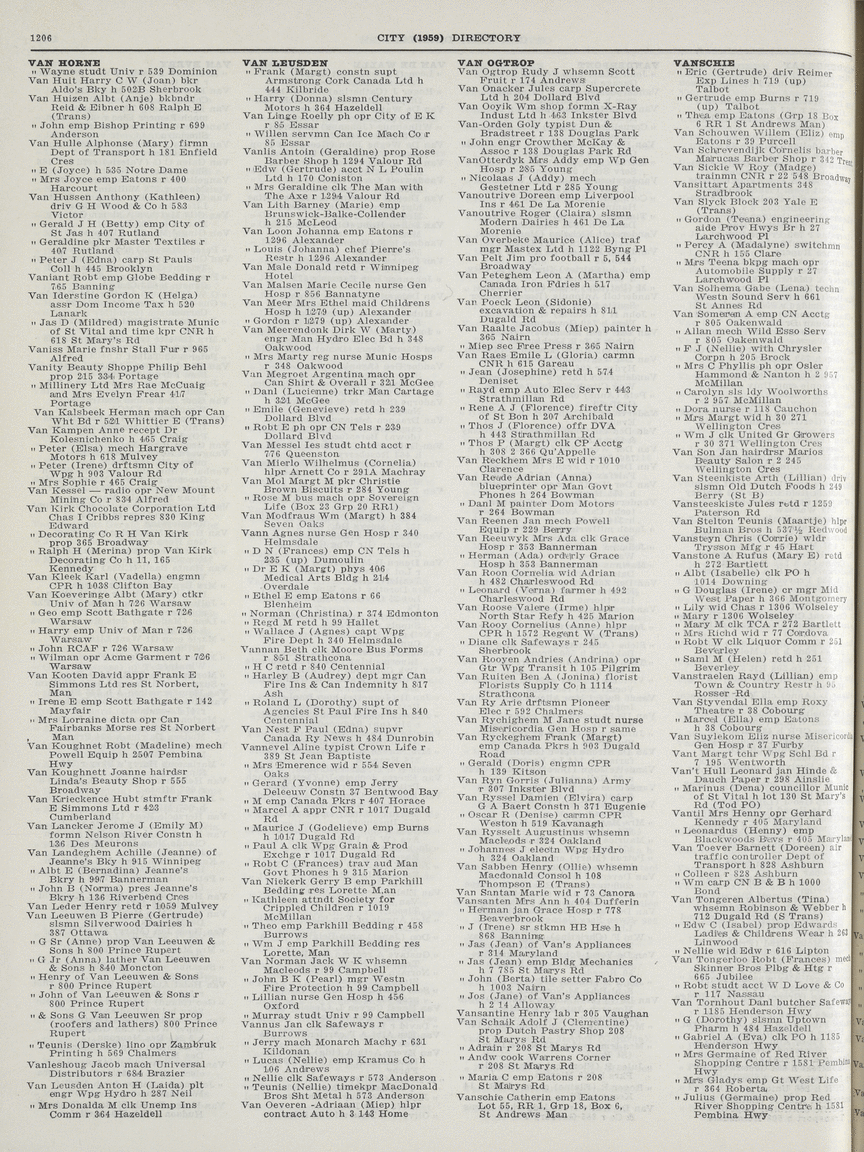 1206
CITY (1959) DIRECTORY
VAN HORNE
" Wayne studt Univ r 539 Dominion
Van Huit Harry C W (Joan) bkr
Aldo's Bky h 502B Sherbrook
Van Huizen Albt (Anje) bkbndr
Reid & Eibner h 608 Ralph E
(Trans)
" John emp Bishop Printing r 699
Anderson
Van Hulle Alphonse (Mary) firmn
Dept of Transport h 181 Enfield
Cres
" E (Joyce) h 535 Notre Dame
" Mrs Joyce emp Eatons r 400
Harcourt
Van Hussen Anthony (Kathleen)
driv G H Wood & Co h 583
Victor
" Gerald J H (Betty) emp City of
St Jas h 407 Rutland
" Geraldine pkr Master Textiles r
407 Rutland
" Peter J (Edna) carp St Pauls
Coll h 445 Brooklyn
Vaniant Robt emp Globe Bedding r
765 Banning
Van Iderstine Gordon K (Helga)
assr Dom Income Tax h 520
Lanark
" Jas D (Mildred) magistrate Munic
of St Vital and time kpr CNR h
618 St Mary's Rd
Vaniss Marie fnshr Stall Fur r 965
Alfred
Vanity Beauty Shoppe Philip Behl
prop 215 334 Portage
" Millinery Ltd Mrs Rae McCuaig
and Mrs Evelyn Frear 417
Portage
Van Kalsbeek Herman mach opr Can
Wht Bd r 521 Whittier E (Trans)
Van Kampen Anne recept Dr
Kolesnichenko h 465 Craig
" Peter (Elsa) mech Hargrave
Motors h 618 Mulvey
" Peter (Irene) drftsmn City of
Wpg h 903 Valour Rd
" Mrs Sophie r 465 Craig
Van Kessel — radio opr New Mount
Mining Co r 834 Alfred
Van Kirk Chocolate Corporation Ltd
Chas I Cribbs repres 830 King
Edward
" Decorating Co R H Van Kirk
prop 365 Broadway
" Ralph H (Merina) prop Van Kirk
Decorating Co h 11, 165
Kennedy
Van Kleek Karl (Vadella) engmn
CPR h 1038 Clifton Bay
Van Koeveringe Albt (Mary) ctkr
Univ of Man h 726 Warsaw
" Geo emp Scott Bathgate r 726
Warsaw
" Harry emp Univ of Man r 726
Warsaw
" John RCAF r 726 Warsaw
" Wilman opr Acme Garment r 726
Warsaw
Van Kooten David appr Frank E
Simmons Ltd res St Norbert,
Man
" Irene E emp Scott Bathgate r 142
Mayfair
" Mrs Lorraine dicta opr Can
Fairbanks Morse res St Norbert
Man
Van Koughnet Robt (Madeline) mech
Powell Equip h 2507 Pembina
Hwy
Van Koughnett Joanne hairdsr
Linda's Beauty Shop r 555
Broadway
Van Krieckence Hubt stmftr Frank
E Simmons Ltd r 423
Cumberland
Van Lancker Jerome J (Emily M)
formn Nelson River Constn h
136 Des Meurons
Van Landeghem Achille (Jeanne) of
Jeanne's Bky h 915 Winnipeg
" Albt E (Bernadina) Jeanne's
Bkry h 997 Bannerman
" John B (Norma) pres Jeanne's
Bkry h 136 Riverbend Cres
Van Leder Henry retd r 1059 Mulvey
Van Leeuwen B Pierre (Gertrude)
slsmn Silverwood Dairies h
387 Ottawa
" G Sr (Anne) prop Van Leeuwen &
Sons h 800 Prince Rupert
" G Jr (Anna) lather Van Leeuwen
& Sons h 840 Moncton
" Henry of Van Leeuwen & Sons
r 800 Prince Rupert
" John of Van Leeuwen & Sons r
800 Prince Rupert
" & Sons G Van Leeuwen Sr prop
(roofers and lathers) 800 Prince
Rupert
" Teunis (Derske) lino opr Zambruk
Printing h 569 Chalmers
Vanleshoug Jacob mach Universal
Distributors r 684 Brazier
Van Leusden Anton H (Laida) plt
engr Wpg Hydro h 287 Neil
" Mrs Donalda M clk Unemp Ins
Comm r 364 Hazeldell
VAN LEUSDEN
" Frank (Margt) constn supt
Armstrong Cork Canada Ltd h
444 Kilbride
" Harry (Donna) slsmn Century
Motors h 364 Hazeldell
Van Linge Roelly ph opr City of E K
r 85 Essar
" Willen servmn Can Ice Mach Co r
85 Essar
Vanlis Antoin (Geraldine) prop Rose
Barber Shop h 1294 Valour Rd
" Edw (Gertrude) acct N L Poulin
Ltd h 170 Coniston
" Mrs Geraldine clk The Man with
The Axe r 1294 Valour Rd
Van Lith Barney (Marie) emp
Brunswick-Balke-Collender
h 215 McLeod
Van Loon Johanna emp Eatons r
1296 Alexander
" Louis (Johanna) chef Pierre's
Restr h 1296 Alexander
Van Male Donald retd r Winnipeg
Hotel
Van Malsen Marie Cecile nurse Gen
Hosp r 856 Bannatyne
Van Meer Mrs Ethel maid Childrens
Hosp h 1279 (up) Alexander
" Gordon r 1279 (up) Alexander
Van Meerendonk Dirk W (Marty)
engr Man Hydro Elec Bd h 348
Oakwood
" Mrs Marty reg nurse Munic Hosps
r 348 Oakwood
Van Megroet Argentina mach opr
Can Shirt & Overall r 321 McGee
" Danl (Lucienne) trkr Man Cartage
h 321 McGee
" Emile (Genevieve) retd h 239
Dollard Blvd
" Robt E ph opr CN Tels r 239
Dollard Blvd
Van Messel Ies studt chtd acct r
776 Queenston
Van Mierlo Wilhelmus (Cornelia)
hlpr Arnett Co r 291A Machray
Van Mol Margt M pkr Christie
Brown Biscuits r 284 Young
" Rose M bus mach opr Sovereign
Life (Box 23 Grp 20 RR1)
Van Modfraus Wm (Margt) h 384
Seven Oaks
Vann Agnes nurse Gen Hosp r 340
Helmsdale
" D N (Frances) emp CN Tels h
235 (up) Dumoulin
" Dr E K (Margt) phys 406
Medical Arts Bldg h 214
Overdale
" Ethel E emp Eatons r 66
Blenheim
" Norman (Christina) r 374 Edmonton
" Regd M retd h 99 Hallet
" Wallace J (Agnes) capt Wpg
Fire Dept h 340 Helmsdale
Vannan Beth clk Moore Bus Forms
r 851 Strathcona
" H C retd r 840 Centennial
" Harley B (Audrey) dept mgr Can
Fire Ins & Can Indemnity h 817
Ash
" Roland L (Dorothy) supt of
Agencies St Paul Fire Ins h 840
Centennial
Van Nest F Paul (Edna) supvr
Canada Ry News h 484 Dunrobin
Vannevel Aline typist Crown Life r
389 St Jean Baptiste
" Mrs Emerence wid r 554 Seven
Oaks
" Gerard (Yvonne) emp Jerry
Deleeuw Constn 37 Bentwood Bay
" M emp Canada Pkrs r 407 Horace
" Marcel A appr CNR r 1017 Dugald
Rd
" Maurice J (Godelieve) emp Burns
h 1017 Dugald Rd
" Paul A clk Wpg Grain & Prod
Exchge r 1017 Dugald Rd
" Robt C (Frances) trav aud Man
Govt Phones h 9 315 Marion
Van Niekerk Gerry B emp Parkhill
Bedding res Lorette Man
" Kathleen attndt Society for
Crippled Children r 1019
McMillan
" Theo emp Parkhill Bedding r 458
Burrows
" Wm J emp Parkhill Bedding res
Lorette, Man
Van Norman Jack W K whsemn
Macleods r 99 Campbell
" John B K (Pearl) mgr Westn
Fire Protection h 99 Campbell
" Lillian nurse Gen Hosp h 456
Oxford
" Murray studt Univ r 99 Campbell
Vannus Jan clk Safeways r
Burrows
" Jerry mach Monarch Machy r 631
Kildonan
" Lucas (Nellie) emp Kramus Co h
106 Andrews
" Nellie clk Safeways r 573 Anderson
" Teunis (Nellie) timekpr MacDonald
Bros Sht Metal h 573 Anderson
Van Oeveren -Adriaan (Miep) hlpr
contract Auto h 3 143 Home
VAN OGTROP
Van Ogtrop Rudy J whsemn Scott
Fruit r 174 Andrews
Van Onacker Jules carp Supercrete
Ltd h 204 Dollard Blvd
Van Ooyik Wm shop formn X-Ray
Indust Ltd h 463 Inkster Blvd
Van-Orden Goly typist Dun &
Bradstreet r 138 Douglas Park
" John engr Crowther McKay &
Assoc r 138 Douglas Park Rd
VanOtterdyk Mrs Addy emp Wp Gen
Hosp r 285 Young
" Nicolaas J (Addy) mech
Gestetner Ltd r 285 Young
Vanoutrive Doreen emp Liverpool
Ins r 461 De La Morenie
Vanoutrive Roger (Claira) slsmn
Modern Dairies h 461 De La
Morenie
Van Overbeke Maurice (Alice) traf
mgr Mastex Ltd h 1122 Byng Pl
Van Pelt Jim pro football r 5, 544
Broadway
Van Peteghem Leon A (Martha) emp
Canada Iron Fdries h 517
Cherrier
Van Poeck Leon (Sidonie)
excavation & repairs h 811
Dugald Rd
Van Raalte Jacobus (Miep) painter h
365 Nairn
" Miep sec Free Press r 365 Nairn
Van Raes Emile L (Gloria) carmn
CNR h 615 Gareau
" Jean (Josephine) retd h 574
Deniset
" Rayd emp Auto Elec Serv r 443
Strathmillan Rd
" Rene A J (Florence) fireftr City
of St Bon h 207 Archibald
" Thos J (Florence) offr DVA
h 443 Strathmillan Rd
" Thos P (Margt) clk CP Acctg
h 308 2 366 Qu'Appelle
Van Reckhem Mrs E wid r 1010
Clarence
Van Reade Adrian (Anna)
blueprinter opr Man Govt
Phones h 264 Bowman
" Danl M painter Dom Motors
r 264 Bowman
Van Reenen Jan mech Powell
Equip r 229 Berry
Van Reeuwyk Mrs Ada clk Grace
Hosp r 353 Bannerman
" Herman (Ada) orderly Grace
Hosp h 353 Bannerman
Van Roon Cornelia wid Adrian
h 482 Charleswood Rd
" Leonard (Verna) farmer h 492
Charleswood Rd
Van Roose Valere (Irme) hlpr
North Star Refy h 425 Marion
Van Rooy Cornelius (Anne) hlpr
CPR h 1572 Regent W (Trans)
" Diane clk Safeways r 245
Sherbrook
Van Rooyen Andries (Andrina) opr
Gtr Wpg Transit h 105 Pilgrim
Van Ruiten Ben A (Jonina) florist
Florists Supply Co h 1114
Strathcona
Van Ry Arie drftsmn Pioneer
Elec r 592 Chalmers
Van Rychighem M Jane studt nurse
Misericordia Gen Hosp r same
Van Ryckeghem Frank (Margt)
emp Canada Pkrs h 903 Dugald
Road
" Gerald (Doris) engmn CPR
h 139 Kitson
Van Ryn Gorris (Julianna) Army
r 307 Inkster Blvd
Van Ryssel Damien (Elvira) carp
G A Baert Constn h 371 Eugenie
" Oscar R (Denise) carmn CPR
Weston h 519 Kavanagh
Van Rysselt Augustinus whsemn
Macleods r 324 Oakland
" Johannes J electn Wpg Hydro
h 324 Oakland
Van Sabben Henry (Ollie) whsemn
Macdonald Consol h 108
Thompson E (Trans)
Van Santan Marie wid r 73 Canora
Vansanten Mrs Ann h 404 Dufferin
" Herman jan Grace Hosp r 778
Beaverbrook
" J (Irene) sr stkmn HB Hse h
868 Banning
" Jas (Jean) of Van's Appliances
r 314 Maryland
" Jas (Jean) emp Bldg Mechanics
h 7 785 St Marys Rd
" John (Berta) tile setter Fabro Co
h 1003 Nairn
" Jos (Jane) of Van's Appliances
h 2 14 Alloway
Vansantine Henry lab r 305 Vaughan
Van Schaik Adolf J (Clementine)
prop Dutch Pastry Shop 208
St Marys Rd
" Adrain r 208 St Marys Rd
" Andw cook Warrens Corner
r 208 St Marys Rd
" Maria C emp Eatons r 208
St Marys Rd
Vanschie Catherin emp Eatons
Lot 55, RR 1, Grp 18, Box 6,
St Andrews Man
VANSCHIE
" Eric (Gertrude) driv Reimer
Exp Lines h 719 (up)
Talbot
" Gertrude emp Burns r 719
(up) Talbot
" Thea emp Eatons (Grp 18 Box
6 RR 1 St Andrews Man)
Van Schouwen Willem (Eliz) emp
Eatons r 39 Purcell
Van Schrevendijk Cornelis barber
Marucas Barber Shop r 342
Van Sickle W Roy (Madge)
trainmn CNR r 22 548 Broadway
Vansittart Apartments 348
Stradbrook
Van Slyck Block 203 Yale E
(Trans)
" Gordon (Teena) engineering
aide Prov Hwys Br h 27
Larchwood Pl
" Percy A (Madalyne) switchmn
CNR h 155 Clare
" Mrs Teena bkpg mach opr
Automobile Supply r 27
Larchwood Pl
Van Solhema Gabe (Lena) techn
Westn Sound Serv h 661
St Annes Rd
Van Someren A emp CN Acctg
r 805 Oakenwald
" Allan mech Wild Esso Serv
r 805 Oakenwald
" F J (Nellie) with Chrysler
Corpn h 205 Brock
" Mrs C Phyllis ph opr Osler
Hammond & Nanton h 2 957
McMillan
" Carolyn sls ldy Woolworths
r 2 957 McMillan
" Dora nurse r 118 Cauchon
" Mrs Margt wid h 30 271
Wellington Cres
" Wm J clk United Gr Growers
r 30 271 Wellington Cres
Van Son Jan hairdrsr Marios
Beauty Salon r 2 245
Wellington Cres
Van Steenkiste Arth (Lillian) driv
slsmn Old Dutch Foods h 249
Berry (St B)
Vansteeskiste Jules retd r 1259
Paterson Rd
Van Stelton Teunis (Maartje) hlpr
Bulman Bros h 537½ Redwood
Vansteyn Chris (Corrie) wldr
Trysson Mfg r 45 Hart
Vanstone A Rufus (Mary E) retd
h 272 Bartlett
" Albt (Isabelle) clk PO h
1014 Downing
" G Douglas (Irene) cr mgr Mid
West Paper h 366 Montgomery
" Lily wid Chas r 1306 Wolseley
" Mary r 1306 Wolseley
" Mary M clk TCA r 272 Bartlett
" Mrs Richd wid r 77 Cordova
" Robt W clk Liquor Comm r 251
Beverley
" Saml M (Helen) retd h 251
Beverley
Vanstraelen Rayd (Lillian) emp
Town & Country Restr h 95
Rosser Rd
Van Styvendal Ella emp Roxy
Theatre r 38 Cobourg
" Marcel (Ella) emp Eatons
h 38 Cobourg
Van Suylekom Eliz nurse Misericordia
Gen Hosp r 37 Furby
Vant Margt tchr Wpg Schl Bd r
7 195 Wentworth
Van't Hull Leonard jan Hinde &
Dauch Paper r 298 Ainslie
" Marinus (Dena) councillor Munic
of St Vital h lot 130 St Mary's
Rd (Tod PO)
Vantil Mrs Henny opr Gerhard
Kennedy r 405 Maryland
" Leonardus (Henny) emp
Blackwoods Bevs r 405 Maryland
Van Toever Barnett (Doreen) air
traffic controller Dept of
Transport h 828 Ashburn
" Colleen r 828 Ashburn
" Wm carp CN B & B h 1000
Bond
Van Tongeren Albertus (Tina)
whsemn Robinson & Webber h
712 Dugald Rd (S Trans)
" Edw C (Isabel) prop Edwards
Ladies & Childrens Wear h 263
Linwood
" Nellie wid Edw r 616 Lipton
Van Tongerloo Robt (Frances) mech
Skinner Bros Plbg & Htg r
665 Jubilee
" Robt studt acct W D Love & Co
r 117 Nassau
Van Tornhout Danl butcher Safeway
r 1185 Henderson Hwy
" G (Dorothy) slsmn Uptown
Pharm h 484 Hazeldell
" Gabriel A (Eva) clk PO h 1185
Henderson Hwy
" Mrs Germaine of Red River
Shopping Centre r 1581 Pembina
Hwy
" Mrs Gladys emp Gt West Life
r 364 Roberta
" Julius (Germaine) prop Red
River Shopping Centre h 1581
Pembina Hwy